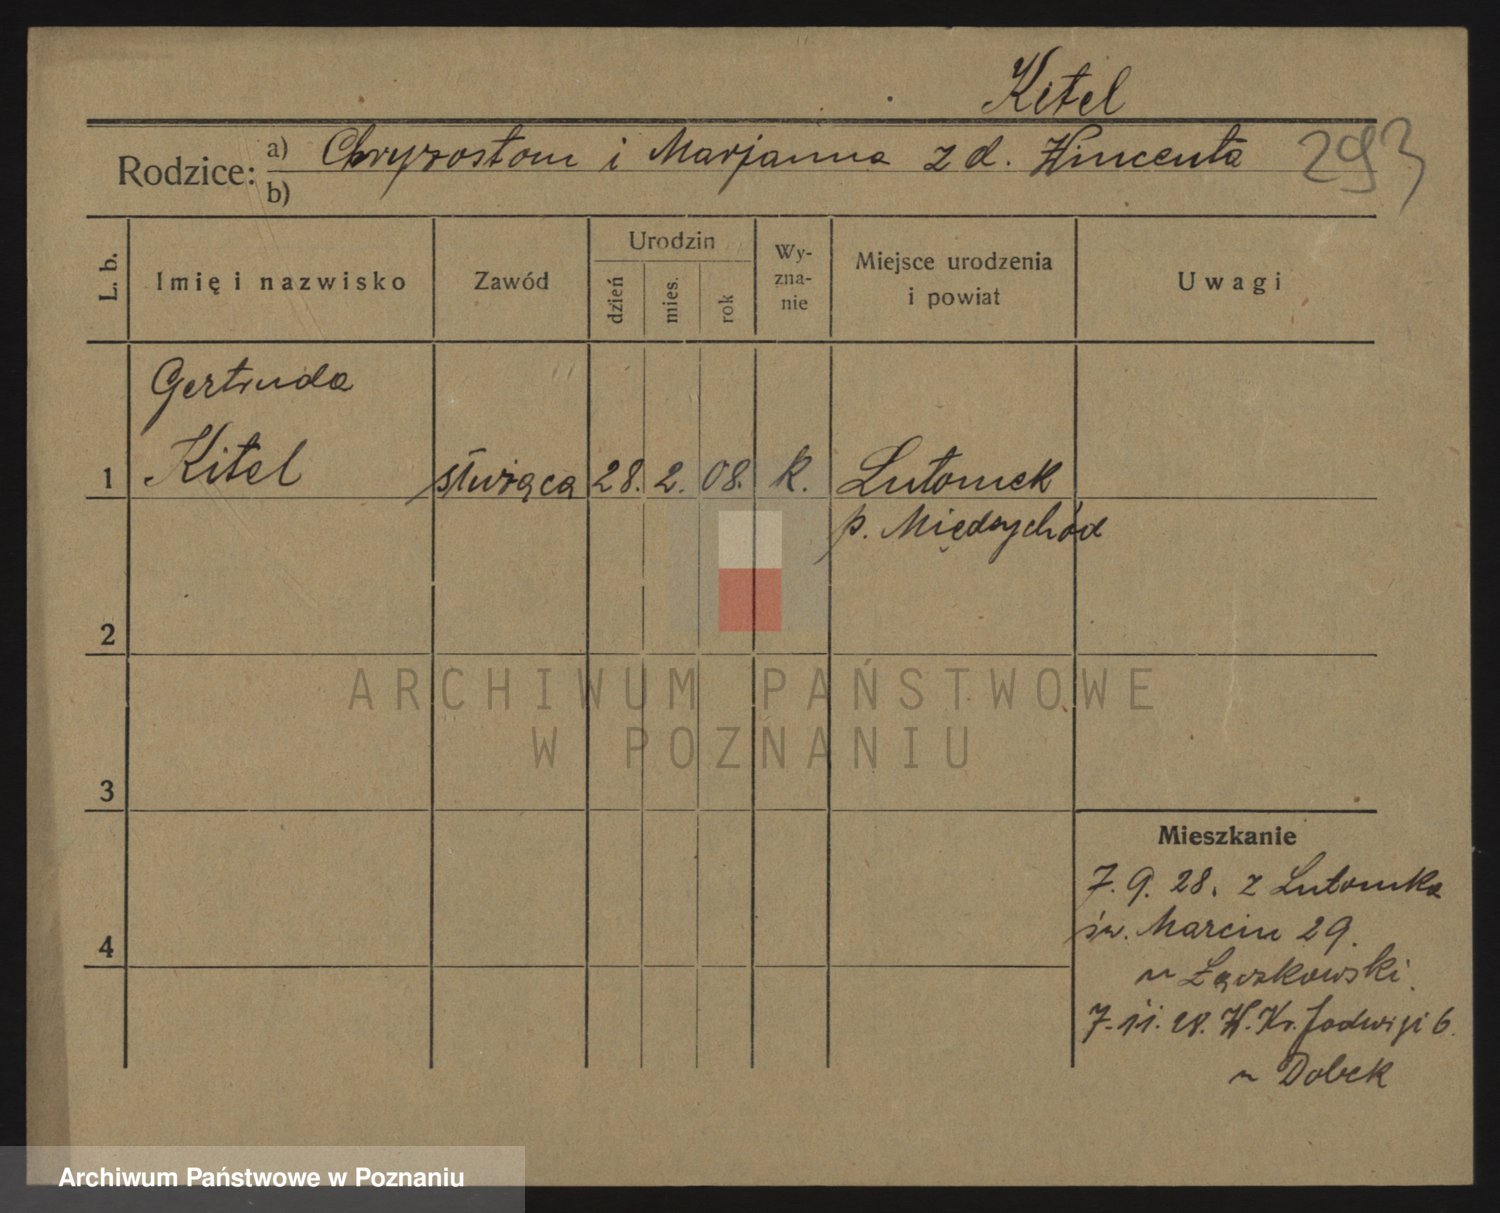 Kitel
293
Rodzice: a) Chryzostom i Marjanna z d. Wincenta
b)
L. b. Imię i nazwisko Zawód Urodzin dzień mies. rok Wy-zna-nie Miejsce urodzenia i powiat Uwagi
Gertruda
1 Kitel służąca 28. 2. 08. k. Lutomek
p. Międzychód
2
ARCHIWUM PAŃSTWOWE
W POZNANIU
3
Mieszkanie
7. 9. 28. z Lutomka
św. Marcin 29.
4
u Łączkowski.
7. 11. 28. W. Kr. Jadwigi 6.
u Dobek
Archiwum Państwowe w Poznaniu